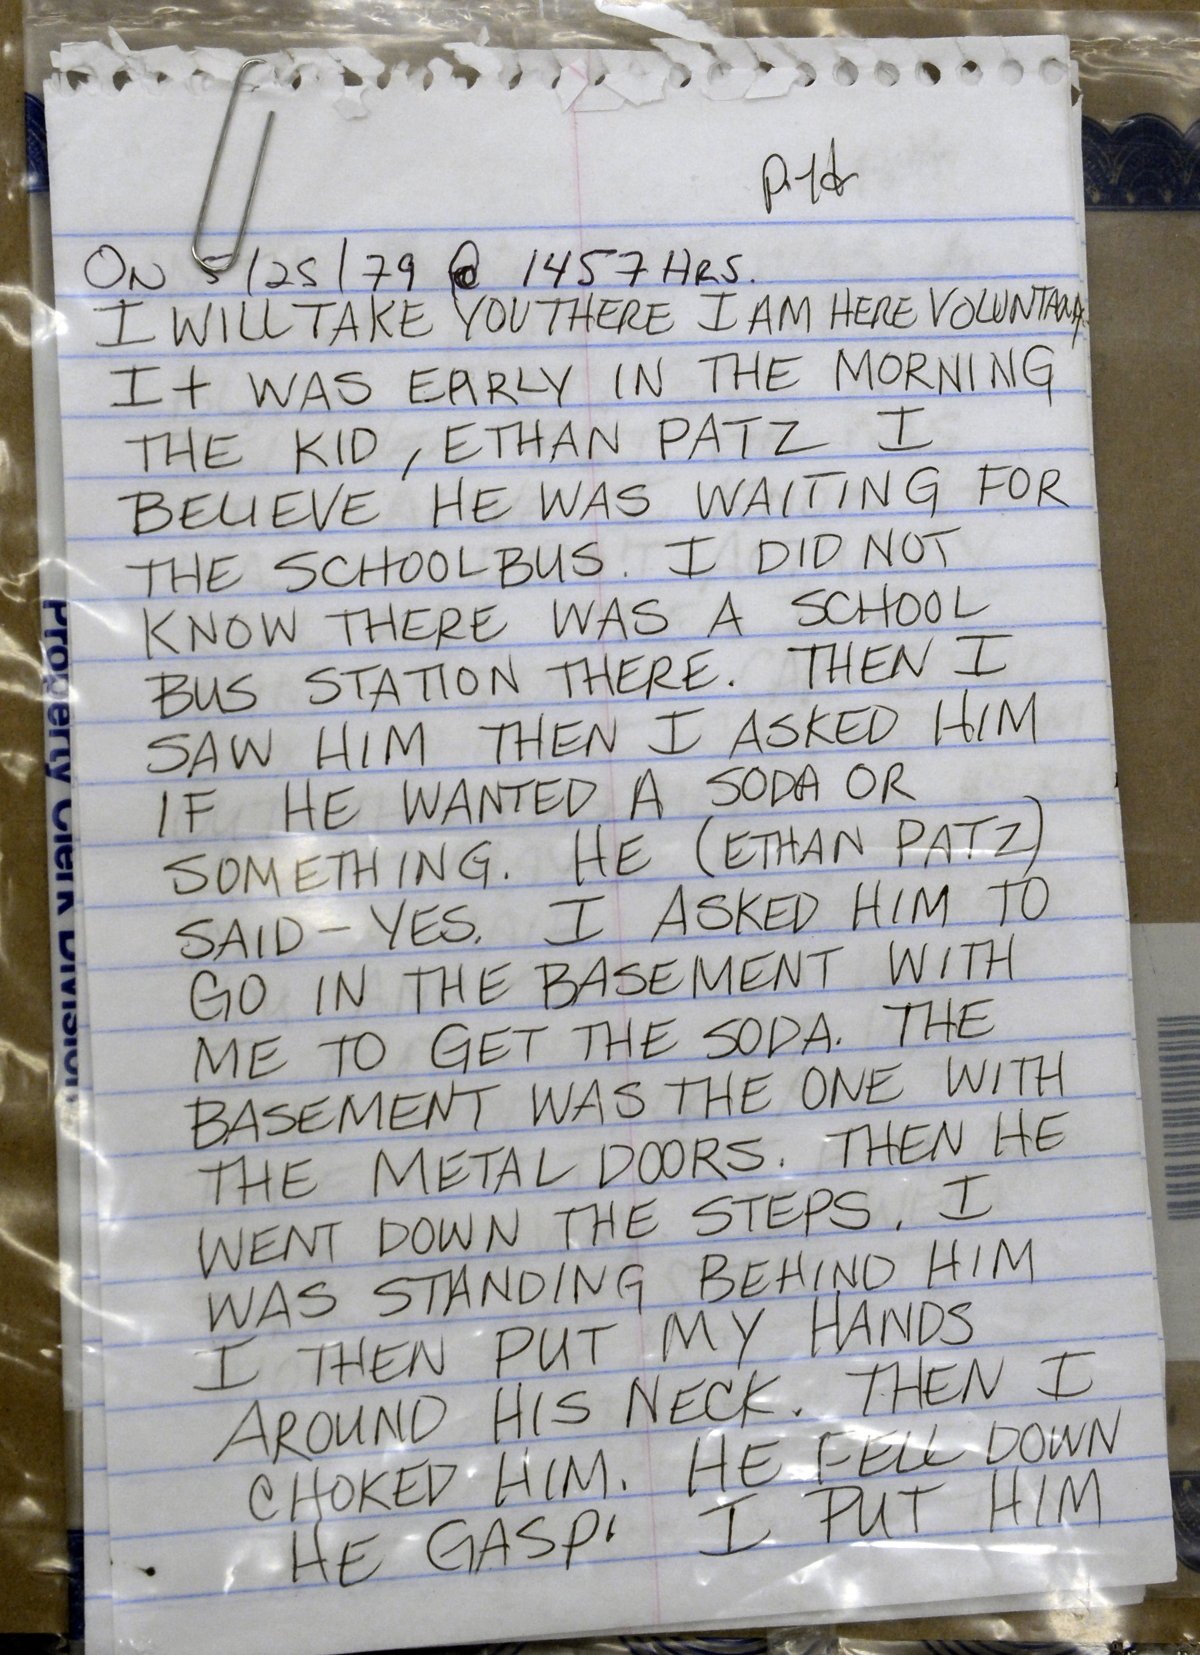 ON 5/25/79 @ 1457 HRS.
I WILL TAKE YOU THERE I AM HERE VOLUNTARY.
It WAS EARLY IN THE MORNING
THE KID, ETHAN PATZ I
BELIEVE HE WAS WAITING FOR
THE SCHOOLBUS. I DID NOT
KNOW THERE WAS A SCHOOL
BUS STATION THERE. THEN I
SAW HIM THEN I ASKED HIM
IF HE WANTED A SODA OR
SOMETHING. HE (ETHAN PATZ)
SAID – YES. I ASKED HIM TO
GO IN THE BASEMENT WITH
ME TO GET THE SODA. THE
BASEMENT WAS THE ONE WITH
THE METAL DOORS. THEN HE
WENT DOWN THE STEPS. I
WAS STANDING BEHIND HIM
I THEN PUT MY HANDS
AROUND HIS NECK. THEN I
CHOKED HIM. HE FELL DOWN
HE GASP. I PUT HIM
Property Clerk Division